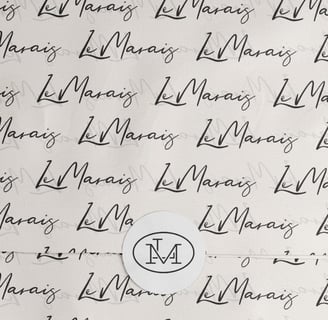 Le Marais Le Marais
Le Marais Le Marais Le Marais
Le Marais Le Marais Le Marais
Le Marais Le Marais Le Marais
Le Marais Le Marais Le Marais
Le Marais Le Ma Le Marais
LM
Le Marais Le Marais Le Marais